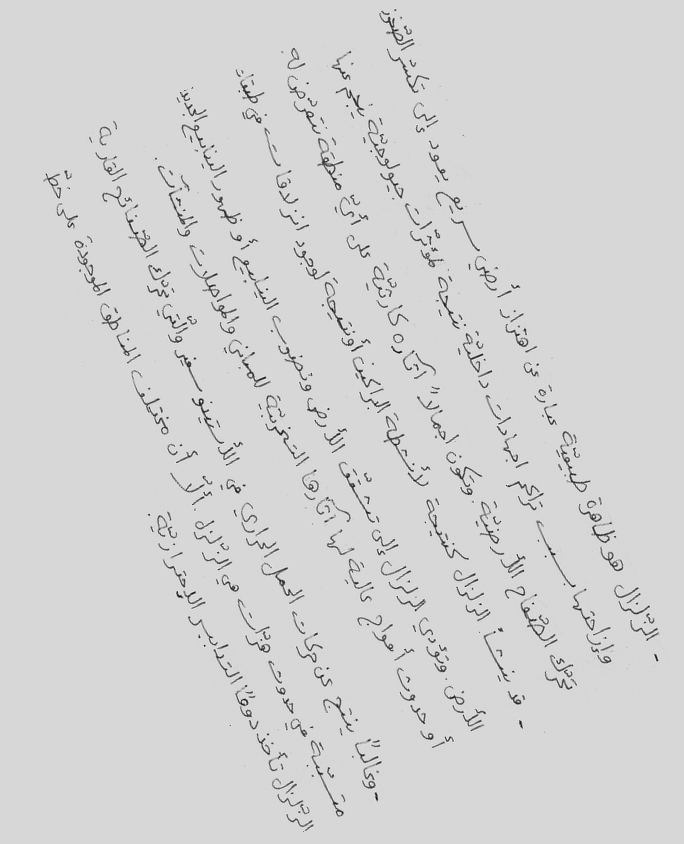 - الزلزال هو ظاهرة طبيعيّة عبارة عن اهتزاز أرضي سريع يعود إلى تكسّر الصّخور
وإزاحتها بسبب تراكم اجهادات داخليّة نتيجة لمؤثّرات جيولوجيّة ينجم عنها
تحرّك الصّفاح الأرضيّة. وتكون اجمالاً آثاره كارثيّة على أيّ منطقة تتعرّض له.
- قد ينشأ الزلزال كنتيجة لأنشطة البراكين أو نتيجة لوجود انزلاقات في طبقات
الأرض. وتؤدي الزلزال إلى تشقّق الأرض ونضوب الينابيع أو ظهور الينابيع الجديدة
أو حدوث أمواج عالية لها آثارها التخريبيّة للمباني والمواصلات والمنشآت.
- وغالباً ينتج عن حركات الحمل الحراري في الأستينوسفير والّتي تحرّك الصّفائح القاريّة
متسبّبة في حدوث هزّات هي الزّلزل. ألّا أن مختلف المناطق الموجودة على خطّ
الزّلزال تأخذ دوماً التدابير الإحترازيّة.